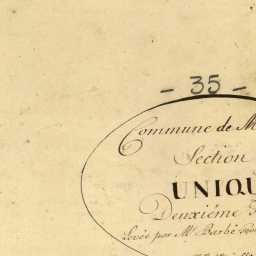 - 35 -
Commune de M
Section
UNIQU
Deuxiéme
Levée par Mr Barbé